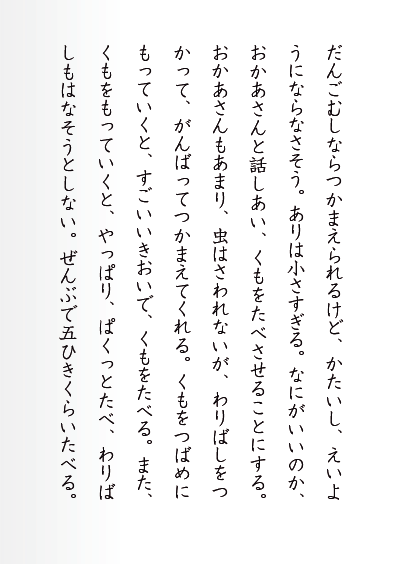 だんごむしならつかまえられるけど、かたいし、えいよ
うにならなさそう。ありは小さすぎる。なにがいいのか、
おかあさんと話しあい、くもをたべさせることにする。
おかあさんもあまり、虫はさわれないが、わりばしをつ
かって、がんばってつかまえてくれる。くもをつばめに
もっていくと、すごいいきおいで、くもをたべる。また、
くもをもっていくと、やっぱり、ぱくっとたべ、わりば
しもはなそうとしない。ぜんぶで五ひきくらいたべる。